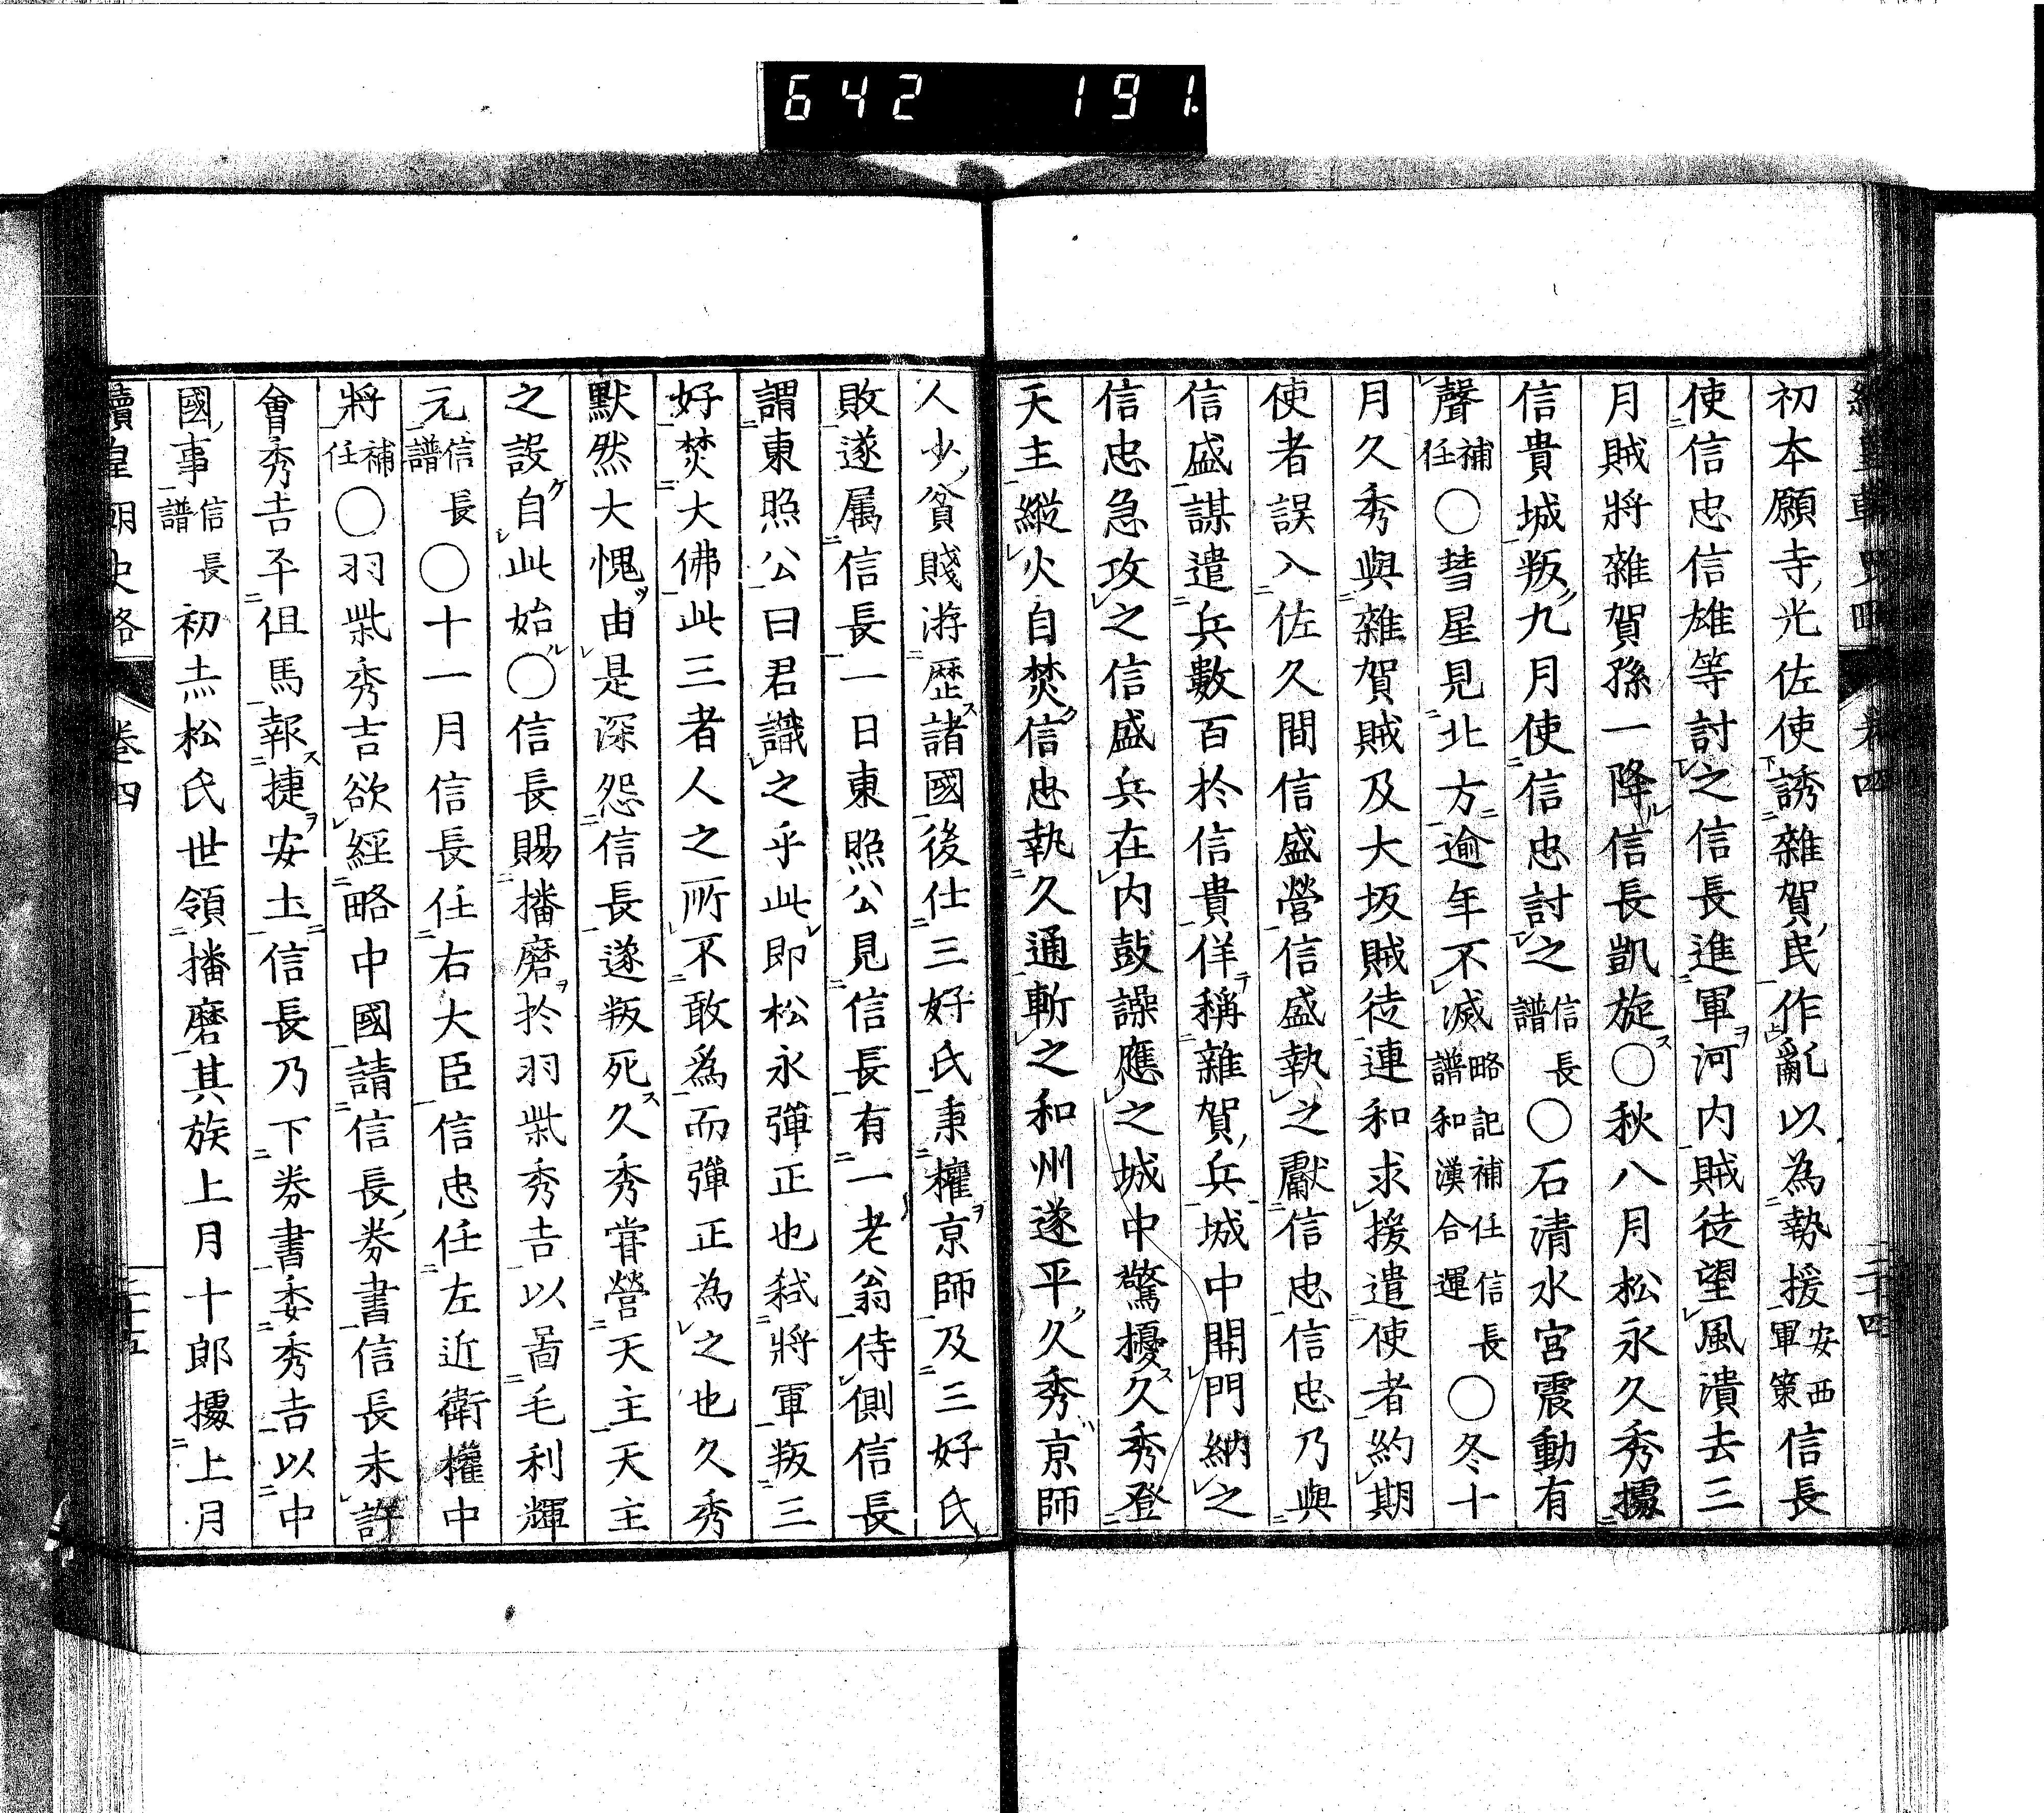 642 191.
初本願寺光佐使誘雜賀民作亂以為勢援安西軍策信長
使信忠信雄等討之信長進軍河内賊徒望風潰去三
月賊將雜賀孫一降信長凱旋〇秋八月松永久秀據
信貴城叛九月使信忠討之信長譜〇石清水宮震動有
聲補任〇彗星見北方逾年不滅略記補任信長譜和漢合運〇冬十
月久秀與雜賀賊及大坂賊徒連和求援遣使者約期
使者誤入佐久間信盛營信盛執之獻信忠信忠乃與
信盛謀遣兵數百於信貴佯稱雜賀兵城中開門納之
信忠急攻之信盛兵在内鼓譟應之城中驚擾久秀登
天主縱火自焚信忠執久通斬之和州遂平久秀京師
人少貧賤游歷諸國後仕三好氏秉權京師及三好氏
敗遂属信長一日東照公見信長有一老翁侍側信長
謂東照公曰君識之乎此即松永彈正也弑將軍叛三
好焚大佛此三者人之所不敢為而彈正為之也久秀
默然大愧由是深怨信長遂叛死久秀嘗營天主天主
之設自此始〇信長賜播磨於羽柴秀吉以啚毛利輝
元信長譜〇十一月信長任右大臣信忠任左近衛權中
將補任〇羽柴秀吉欲經略中國請信長劵書信長未許
會秀吉平但馬報捷安土信長乃下劵書委秀吉以中
國事信長譜初赤松氏世領播磨其族上月十郎據上月
續皇朝史略 卷四 二十五